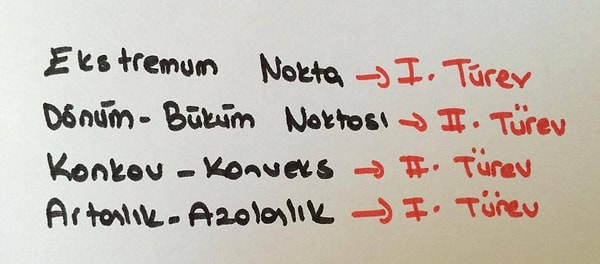 Ekstremum Nokta → I. Türev
Dönüm - Büküm Noktası → II. Türev
Konkav - Konveks → II. Türev
Artanlık - Azalanlık → I. Türev